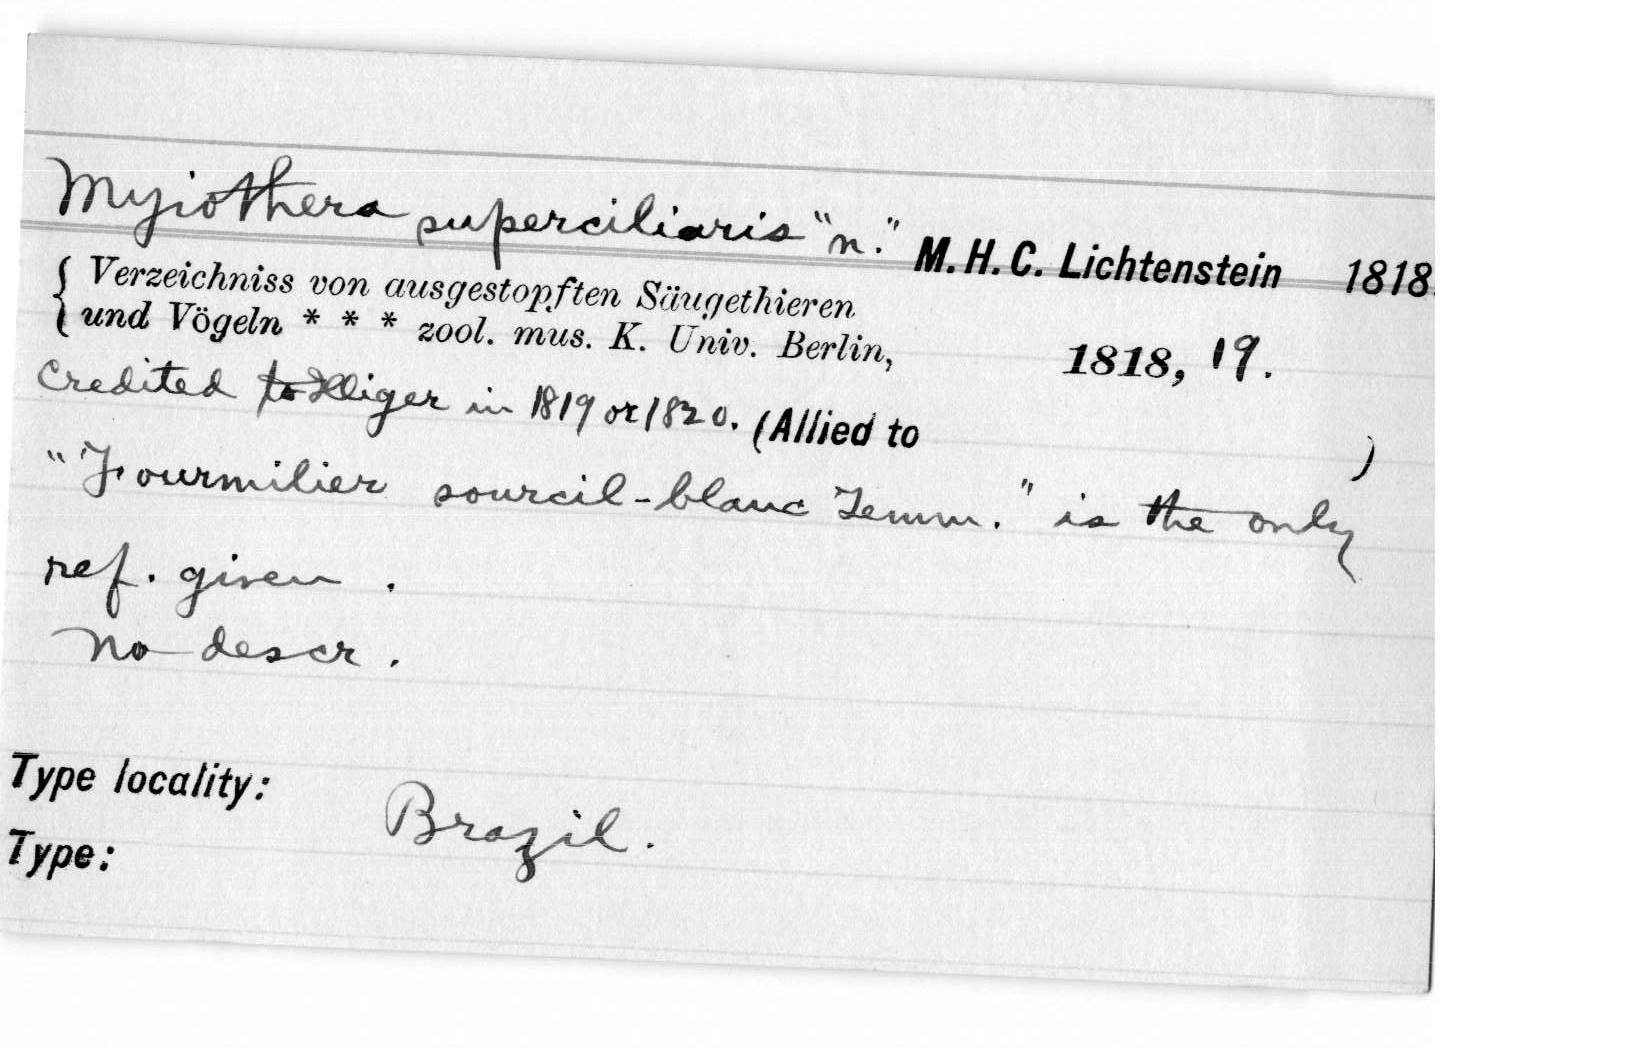 Myiothera superciliaris "n." M. H. C. Lichtenstein 1818.
{ Verzeichniss von ausgestopften Säugethieren
{ und Vögeln * * * zool. mus. K. Univ. Berlin, 1818, 19.
Credited to Illiger in 1819 or 1820. (Allied to )
"Fourmilier sourcil-blanc Temm." is the only
ref. given .
No descr .
Type locality: Brazil.
Type: